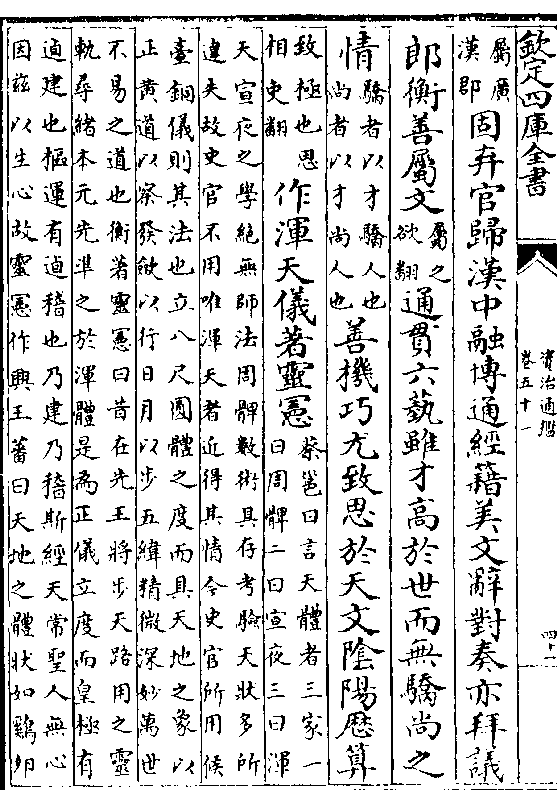 欽定四庫全書
資治通鑑
卷五十一
四十一
屬廣
漢郡
固弃官歸漢中融博通經籍美文辭對奏亦拜議
郎衡善屬文
屬之
欲翻
通貫六藝雖才高於世而無驕尚之
情
驕者以才驕人也
尚者以才尚人也
善機巧尤致思於天文陰陽厯算
致極也思
相吏翻
作渾天儀著靈憲
蔡邕曰言天體者三家一
曰周髀二曰宣夜三曰渾
天宣夜之學絶無師法周髀數術具存考驗天狀多所
違失故史官不用唯渾天者近得其情今史官所用候
臺銅儀則其法也立八尺圓體之度而具天地之象以
正黄道以察發斂以行日月以步五緯精微深妙萬世
不易之道也衡著靈憲曰昔在先王將步天路用之靈
軌尋緒本元先準之於渾體是為正儀立度而皇極有
逌建也樞運有逌稽也乃建乃稽斯經天常聖人無心
因茲以生心故靈憲作興王蕃曰天地之體狀如鷄卵